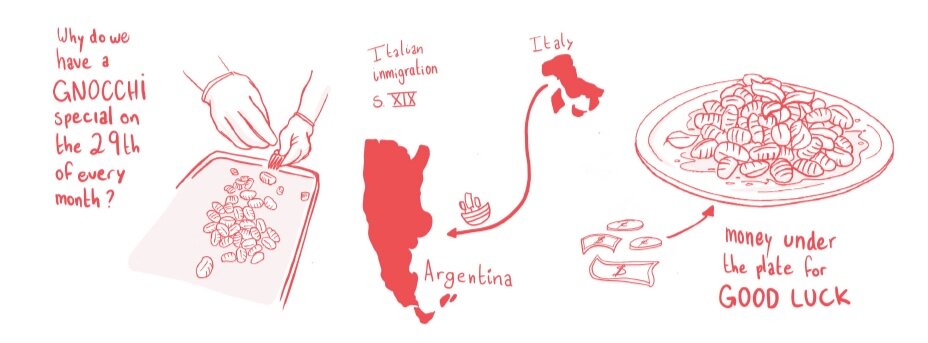 Why do we
have a
GNOCCHi
special on
the 29th
of every
month?
Italian
inmigration
S. XIX
Italy
Argentina
money under
the plate for
GOOD LUCK